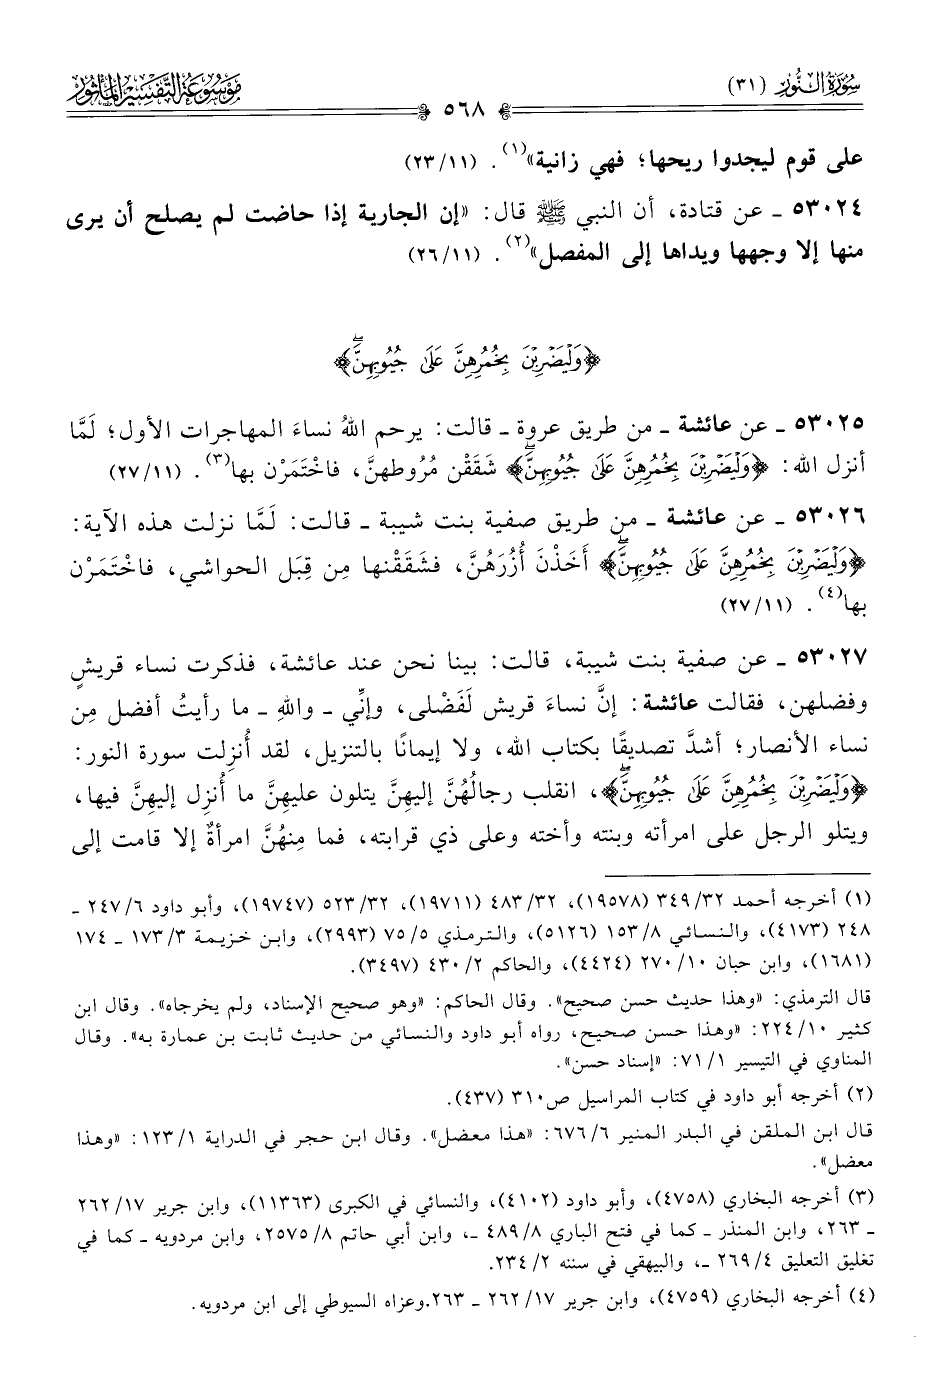 سُورَةُ النُّورِ (٣١)
٥٦٨
مَوْسُوعَةُ التَّفْسِيرِ المَأْثُورِ
على قوم ليجدوا ريحها؛ فهي زانية»(١). (٢٣/١١)
٥٣٠٢٤ ـ عن قتادة، أن النبي ﷺ قال: «إن الجارية إذا حاضت لم يصلح أن يرى
منها إلا وجهها ويداها إلى المفصل»(٢). (٢٦/١١)
﴿وَلْيَضْرِبْنَ بِخُمُرِهِنَّ عَلَىٰ جُيُوبِهِنَّۖ﴾
٥٣٠٢٥ ـ عن عائشة ـ من طريق عروة ـ قالت: يرحم اللهُ نساءَ المهاجرات الأول؛ لَمَّا
أنزل الله: ﴿وَلْيَضْرِبْنَ بِخُمُرِهِنَّ عَلَىٰ جُيُوبِهِنَّۖ﴾ شَقَقْن مُرُوطهنَّ، فاخْتَمَرْن بها(٣). (٢٧/١١)
٥٣٠٢٦ ـ عن عائشة ـ من طريق صفية بنت شيبة ـ قالت: لَمَّا نزلت هذه الآية:
﴿وَلْيَضْرِبْنَ بِخُمُرِهِنَّ عَلَىٰ جُيُوبِهِنَّۖ﴾ أَخَذْنَ أُزُرَهُنَّ، فشَقَقْنها مِن قِبَل الحواشي، فاخْتَمَرْن
بها(٤). (٢٧/١١)
٥٣٠٢٧ ـ عن صفية بنت شيبة، قالت: بينا نحن عند عائشة، فذكرت نساء قريشٍ
وفضلهن، فقالت عائشة: إنَّ نساءَ قريش لَفَضْلى، وإنِّي ـ واللهِ ـ ما رأيتُ أفضل مِن
نساء الأنصار؛ أشدَّ تصديقًا بكتاب الله، ولا إيمانًا بالتنزيل، لقد أُنزِلت سورة النور:
﴿وَلْيَضْرِبْنَ بِخُمُرِهِنَّ عَلَىٰ جُيُوبِهِنَّۖ﴾، انقلب رجالُهُنَّ إليهِنَّ يتلون عليهِنَّ ما أُنزِل إليهِنَّ فيها،
ويتلو الرجل على امرأته وبنته وأخته وعلى ذي قرابته، فما مِنهُنَّ امرأةٌ إلا قامت إلى
(١) أخرجه أحمد ٣٤٩/٣٢ (١٩٥٧٨)، ٤٨٣/٣٢ (١٩٧١١)، ٥٢٣/٣٢ (١٩٧٤٧)، وأبو داود ٢٤٧/٦ ـ
٢٤٨ (٤١٧٣)، والنسائي ١٥٣/٨ (٥١٢٦)، والترمذي ٧٥/٥ (٢٩٩٣)، وابن خزيمة ١٧٣/٣ ـ ١٧٤
(١٦٨١)، وابن حبان ٢٧٠/١٠ (٤٤٢٤)، والحاكم ٤٣٠/٢ (٣٤٩٧).
قال الترمذي: «وهذا حديث حسن صحيح». وقال الحاكم: «وهو صحيح الإسناد، ولم يخرجاه». وقال ابن
كثير ٢٢٤/١٠: «وهذا حسن صحيح، رواه أبو داود والنسائي من حديث ثابت بن عمارة به». وقال
المناوي في التيسير ٧١/١: «إسناد حسن».
(٢) أخرجه أبو داود في كتاب المراسيل ص٣١٠ (٤٣٧).
قال ابن الملقن في البدر المنير ٦٧٦/٦: «هذا معضل». وقال ابن حجر في الدراية ١٢٣/١: «وهذا
معضل».
(٣) أخرجه البخاري (٤٧٥٨)، وأبو داود (٤١٠٢)، والنسائي في الكبرى (١١٣٦٣)، وابن جرير ٢٦٢/١٧
ـ ٢٦٣، وابن المنذر ـ كما في فتح الباري ٤٨٩/٨ ـ، وابن أبي حاتم ٢٥٧٥/٨، وابن مردويه ـ كما في
تغليق التعليق ٢٦٩/٤ ـ، والبيهقي في سننه ٢٣٤/٢.
(٤) أخرجه البخاري (٤٧٥٩)، وابن جرير ٢٦٢/١٧ ـ ٢٦٣.وعزاه السيوطي إلى ابن مردويه.